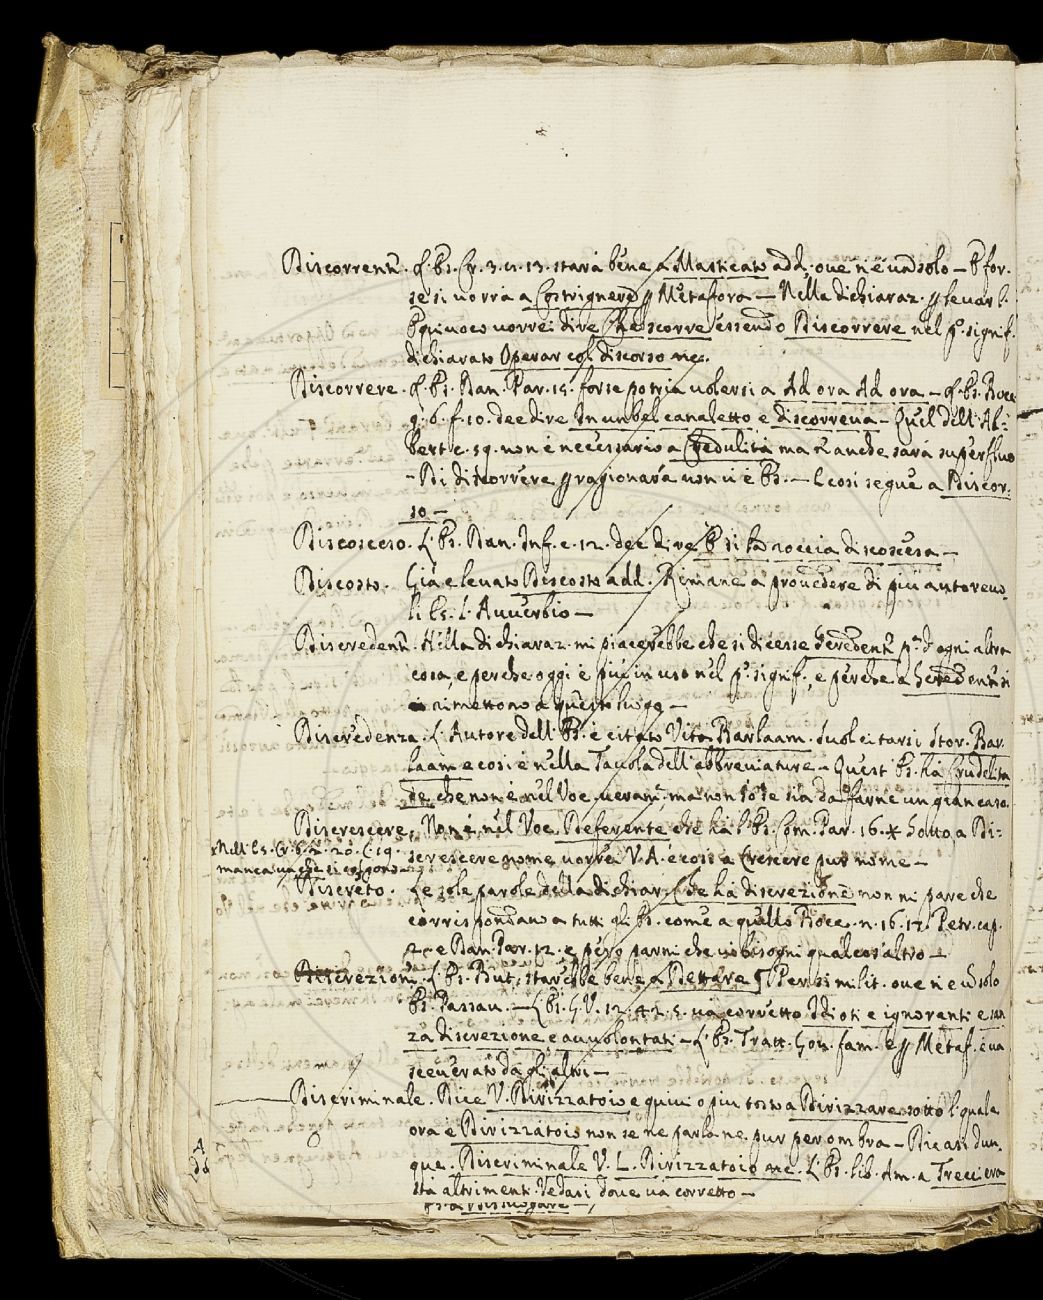 Discorrent̃. l'Es. Cr. 3. n. 13. starà bene a Masticato add. ove n'è un̄ solo — E for-
se si vorrà a Costrignere p Metafora — Nella dichiaraz. p levar l'
Equivoco vorrei dire Che discorre essendo Discorrere nel p.º signif.
dichiarato Operar col discorso
Discorrere. l'Es. Dan. Par. 15. forse potria volersi a Ad ora Ad ora — l'Es. Bocc.
g. 6. f. 10. dee dire In un bel canaletto e discorreva — Quel dell' Al-
bert. c. 59. non è necessario a Credulità ma anche sarà superfluo
— Di discorrere p ragionare non vi è Es. — E così segue a Discor-
so —
Discosceso. l'Es. Dan. Inf. c. 12. dee dire E sì la roccia discoscesa —
Discosto. Già è levato Discosto add. Rimane a provedere di più autorevo-
li Es. l'Avverbio —
Discredent̃. Nella dichiaraz. mi piacerebbe che si dicesse Scredent̃ p.ª d'ogni altra
cosa, e perche oggi è più in uso nel p.º signif., e perche a
rimettono a questo luogo —
Discredenza. l'Autore dell'Es. è citato Vita Barlaam. Suol citarsi Stor. Bar-
laam e così è nella Tavola dell'abbreviature — Quest'Es. ha Crudelita
de che non è nel Voc. ma non so se sia da farne un gran caso.
Discrescere. Non è nel Voc. Deferente che ha l'Es. Com. Par. 16. * Sotto a Di-
screscere nome vorrei V. A. e così a Crescere pur nome —
Nell'Es. Cr. 6. 20. c. 19.
manca un che ci
Discreto. Le sole parole della dichiar. Che ha discrezione non mi pare che
corrispondano a tutti gli Es. come a quello Bocc. n. 16. 17. Petr. cap.
2. e Dan. Par. 12. e però parmi che vi bisogni qualcos'altro —
Discrezione. l'Es. But. starebbe bene a Dettare § Per similit. ove n'è un̄ solo
Es. Passav. — l'Es. G. V. 12. 42. 5. va corretto Idioti e ignoranti e san-
za discrezione e avvolontati — l'Es. Tratt. Gov. fam. è p Metaf. e va
sceverato da gli altri —
Discriminale. Dice V. Dirizzatoio e quivi o più tosto a Dirizzare sotto l quale
ora è Dirizzatoio non se ne parla ne pur per ombra — Dicasi dun-
que. Discriminale V. L. Dirizzatoio l'Es. lib. Am. a Trecciera
sta altriment. Vedasi dove va corretto —